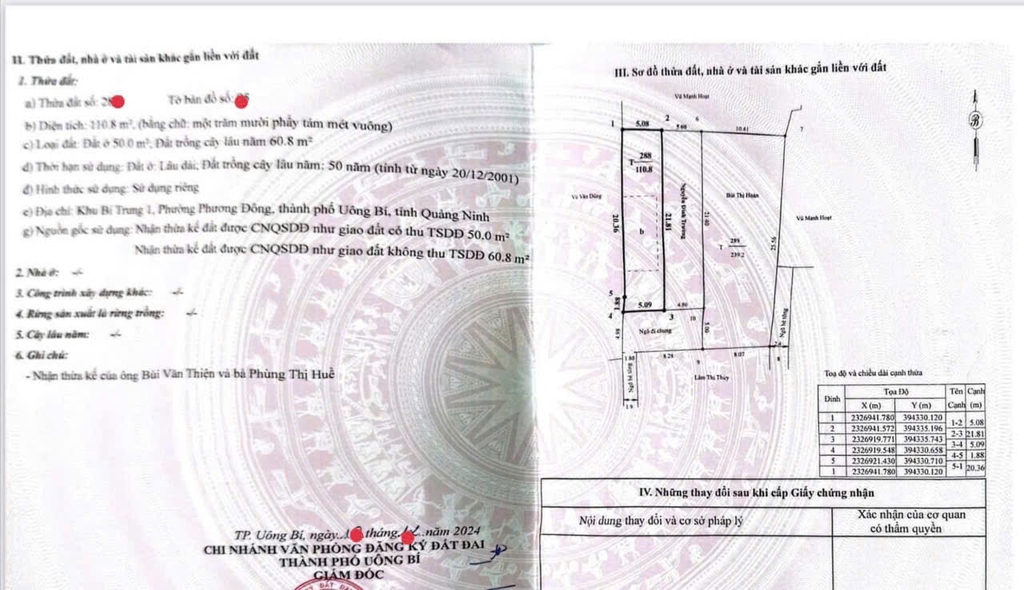 II. Thửa đất, nhà ở và tài sản khác gắn liền với đất
1. Thửa đất:
a) Thửa đất số: 28 Tờ bản đồ số:
b) Diện tích: 110.8 m², (bằng chữ: một trăm mười phẩy tám mét vuông)
c) Loại đất: Đất ở 50.0 m²; Đất trồng cây lâu năm 60.8 m²
d) Thời hạn sử dụng: Đất ở: Lâu dài; Đất trồng cây lâu năm: 50 năm (tính từ ngày 20/12/2001)
đ) Hình thức sử dụng: Sử dụng riêng
e) Địa chỉ: Khu Bí Trung 1, Phường Phương Đông, thành phố Uông Bí, tỉnh Quảng Ninh
g) Nguồn gốc sử dụng: Nhận thừa kế đất được CNQSDĐ như giao đất có thu TSDĐ 50.0 m²
Nhận thừa kế đất được CNQSDĐ như giao đất không thu TSDĐ 60.8 m²
2. Nhà ở: -/-
3. Công trình xây dựng khác: -/-
4. Rừng sản xuất là rừng trồng: -/-
5. Cây lâu năm: -/-
6. Ghi chú:
- Nhận thừa kế của ông Bùi Văn Thiện và bà Phùng Thị Huề
TP. Uông Bí, ngày tháng năm 2024
CHI NHÁNH VĂN PHÒNG ĐĂNG KÝ ĐẤT ĐAI
THÀNH PHỐ UÔNG BÍ
GIÁM ĐỐC
III. Sơ đồ thửa đất, nhà ở và tài sản khác gắn liền với đất
Vũ Mạnh Hoạt
B
1 5.08 2 5.00 6 10.61 7
T 288
110.8
Vũ Văn Dũng
Bùi Thị Hoàn
Vũ Mạnh Hoạt
20.36
b
21.81
21.40
25.56
T 289
239.2
5
1.88
4 5.09 3 4.86 10
4.98
Ngõ đi chung
5.00
Ngõ bê tông
1.80 8.28 9 8.07 8
Ngõ bê tông
Lâm Thị Thủy
1.9
Toạ độ và chiều dài cạnh thửa
Đỉnh Tọa Độ Tên Cạnh
X (m) Y (m) Cạnh (m)
1 2326941.780 394330.120
1-2 5.08
2 2326941.572 394335.196
2-3 21.81
3 2326919.771 394335.743
3-4 5.09
4 2326919.548 394330.658
4-5 1.88
5 2326921.430 394330.710
5-1 20.36
1 2326941.780 394330.120
IV. Những thay đổi sau khi cấp Giấy chứng nhận
Nội dung thay đổi và cơ sở pháp lý Xác nhận của cơ quan
có thẩm quyền